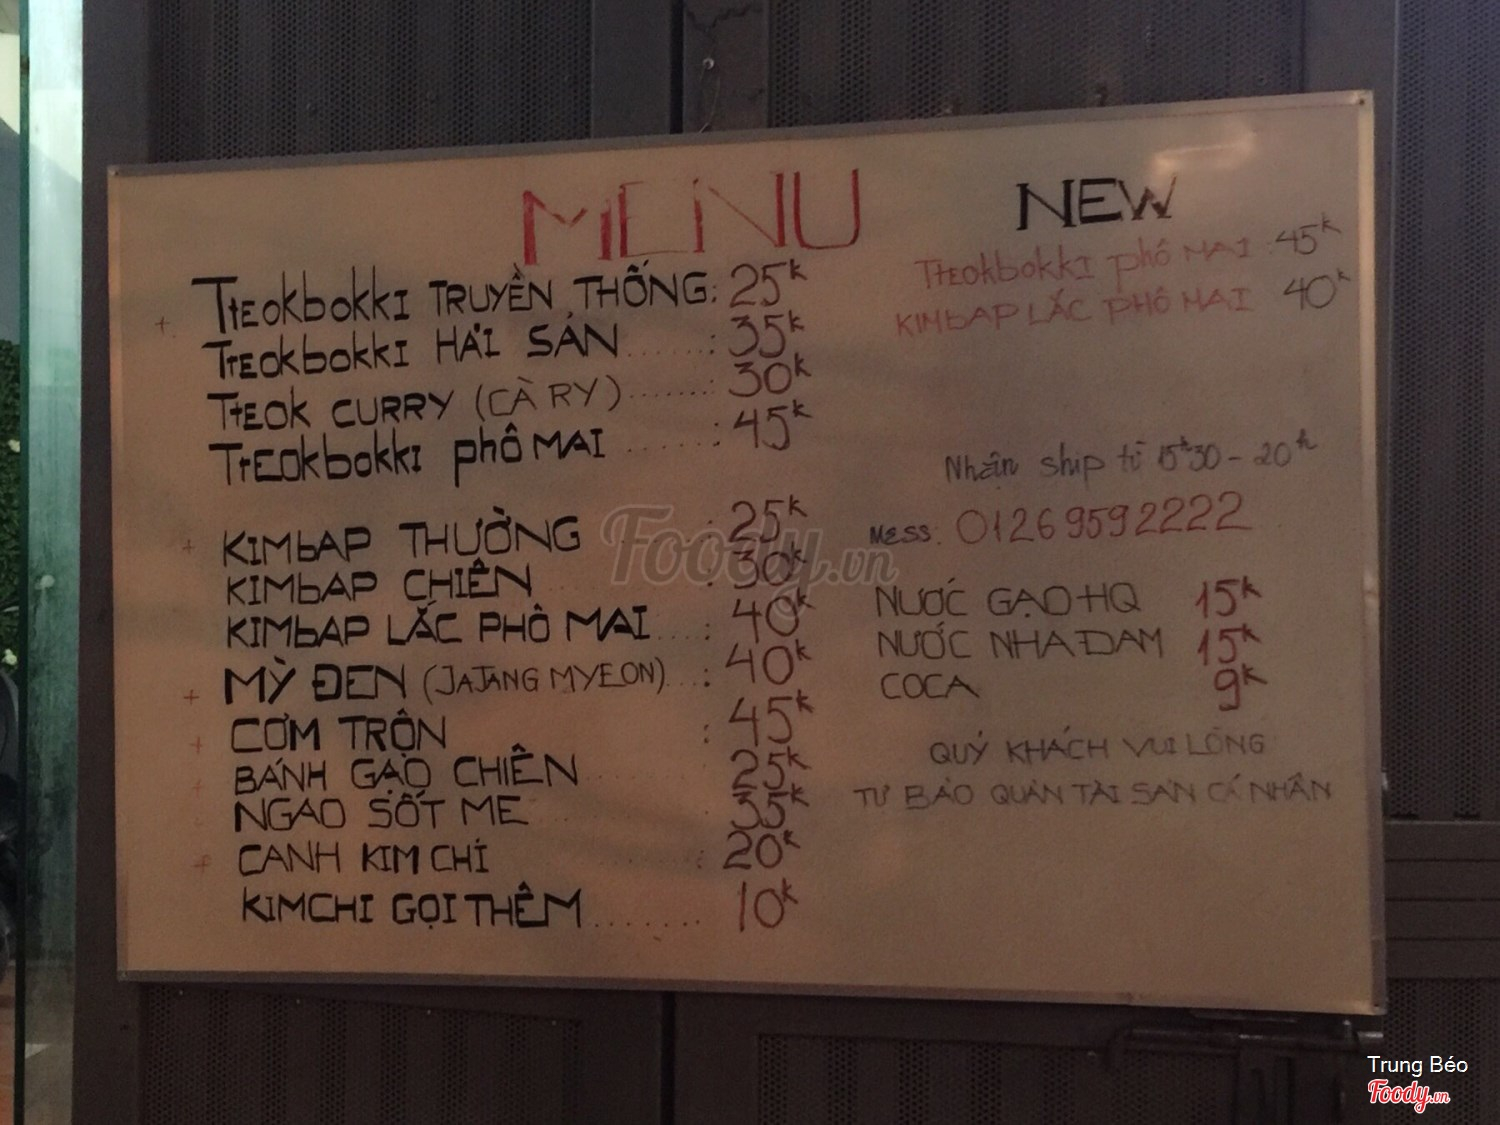 MENU
TtEOkbokki TRUYỀN THỐNG: 25k
TtEOkbokki HẢI SẢN ......: 35k
TtEOK CURRY (CÀ RY) .......: 30k
TtEOkbokki phô MAI .......: 45k
+ KIMbAP THƯỜNG : 25k
KIMbAP CHIÊN : 30k
KIMbAP LẮC PHÔ MAI....: 40k
+ MỲ ĐEN (JAJANG MYEON)...: 40k
+ CƠM TRỘN : 45k
+ BÁNH GẠO CHIÊN 25k
NGAO SỐT ME : 35k
+ CANH KIM CHI : 20k
KIMCHI GỌI THÊM ........ 10k
NEW
TtEOkbokki phô MAI : 45k
KIMbAP LẮC PHÔ MAI 40k
Nhận ship từ 15h30 - 20h
MESS: 01269592222
NƯỚC GẠO HQ 15k
NƯỚC NHA ĐAM 15k
COCA 9k
QUÝ KHÁCH VUI LÒNG
TỰ BẢO QUẢN TÀI SẢN CÁ NHÂN
Foody.vn
Trung Béo
Foody.vn